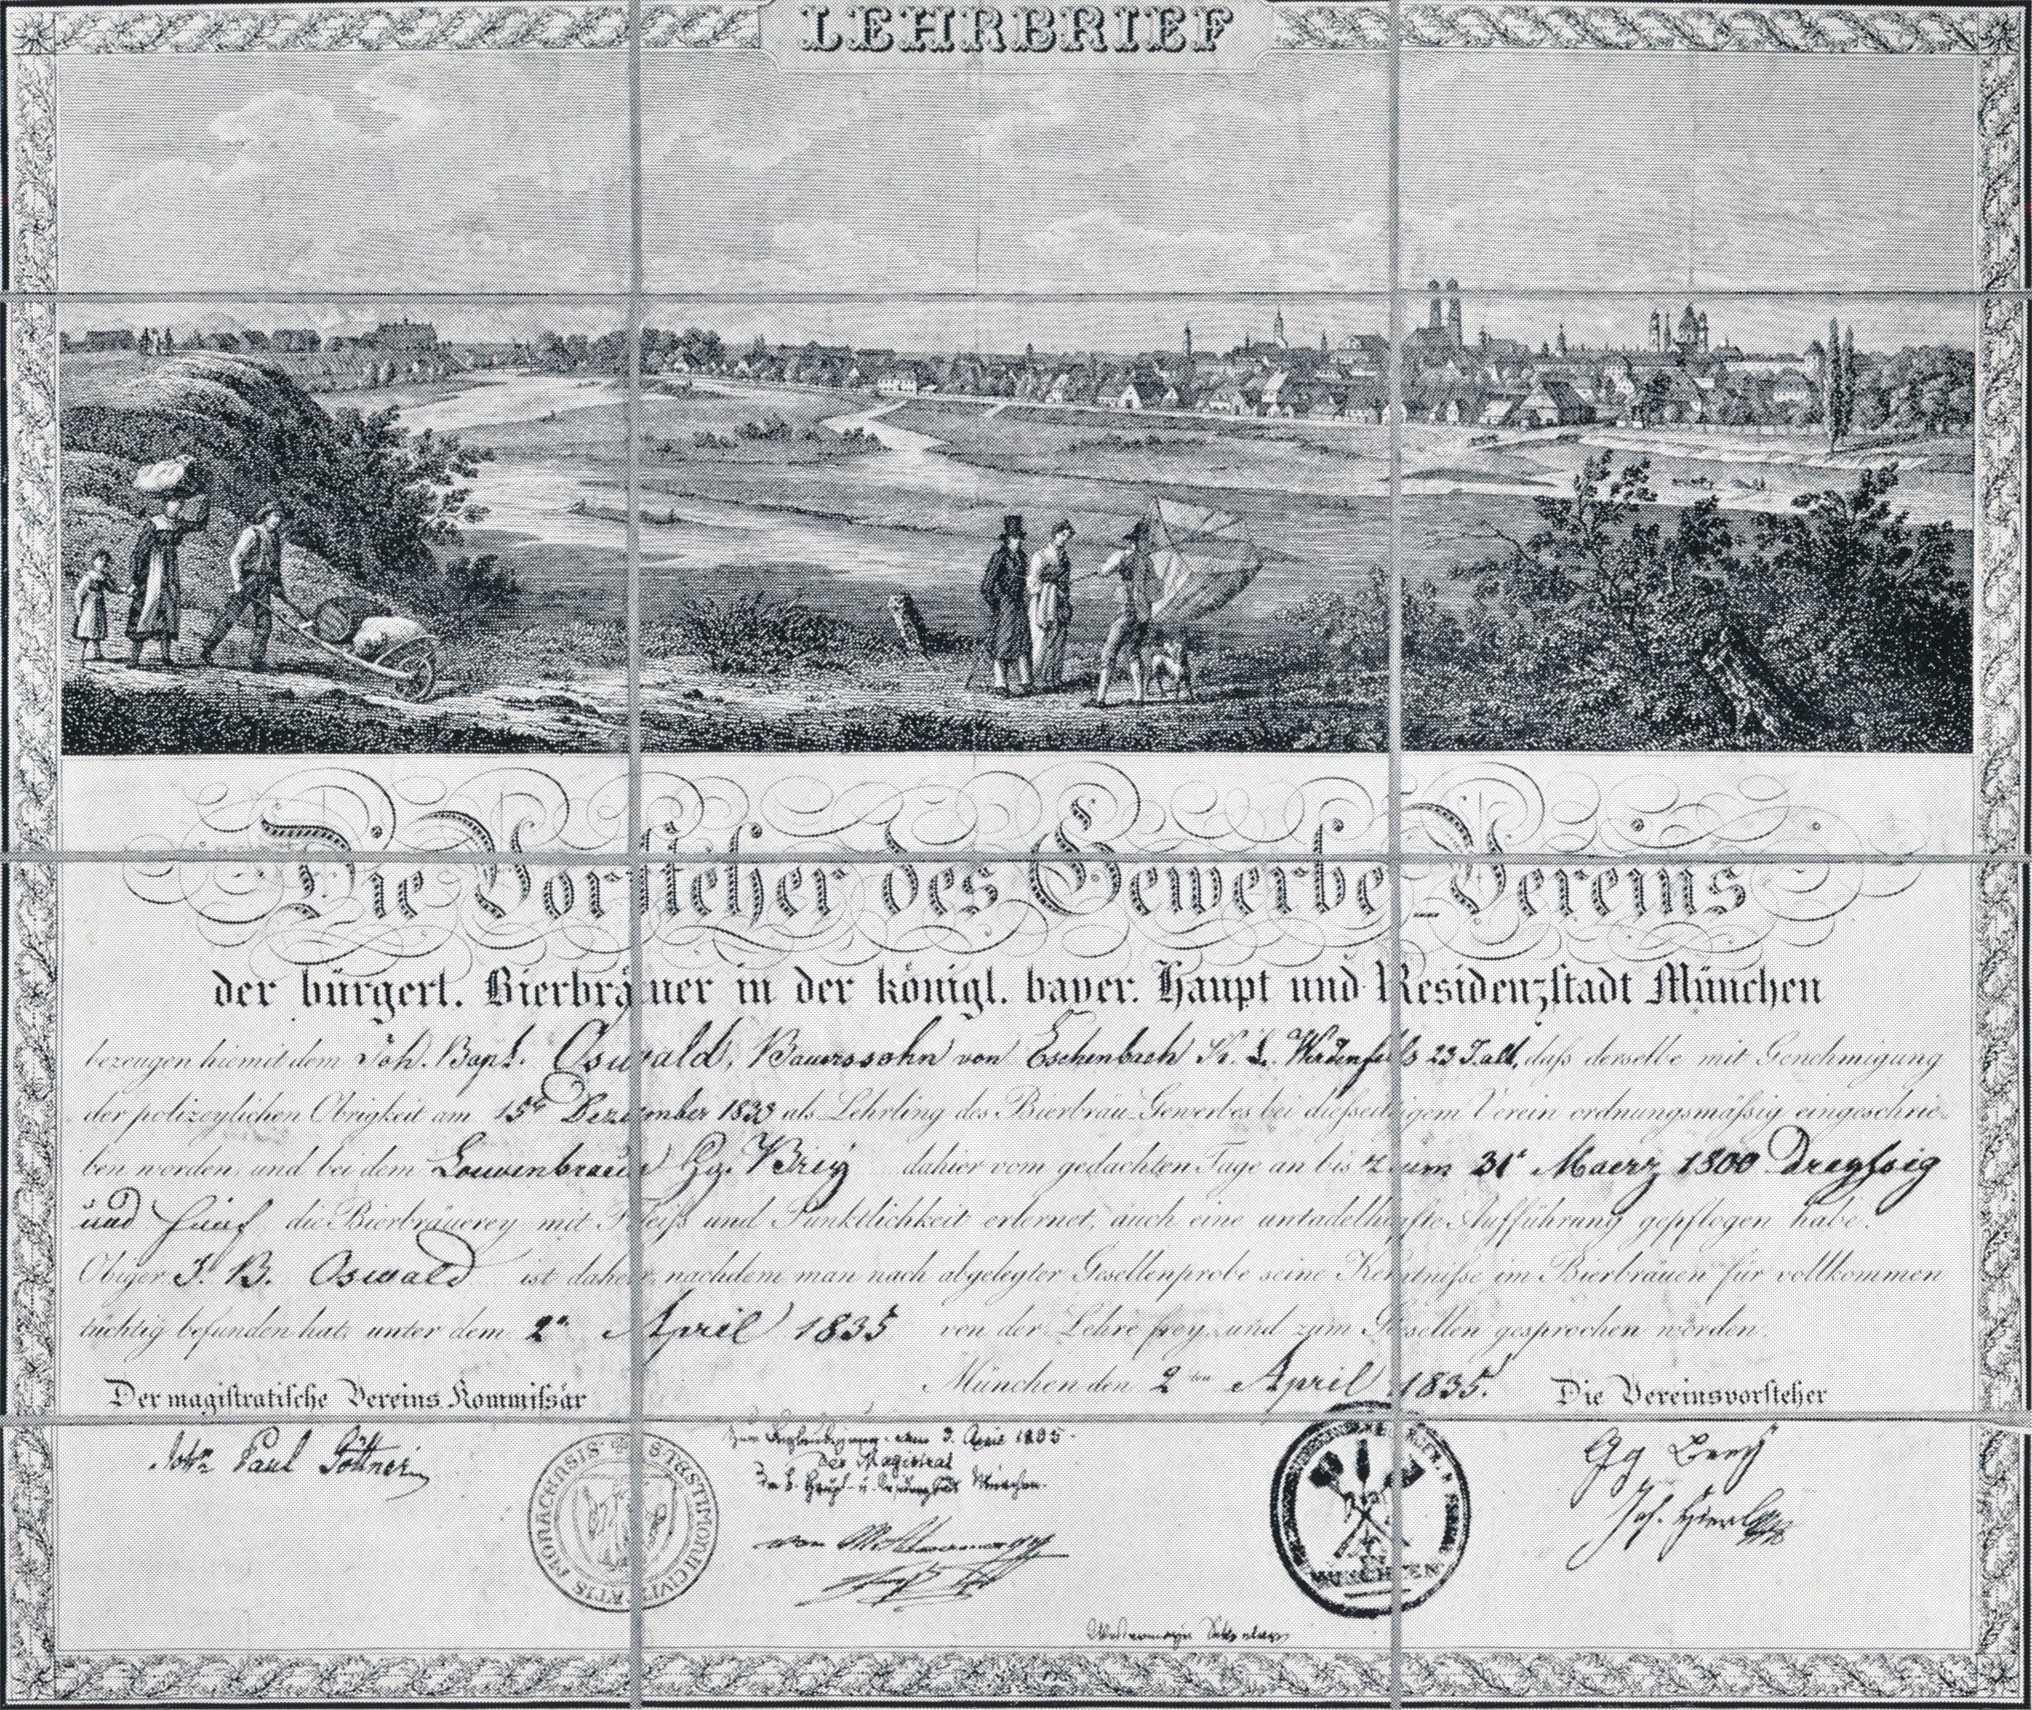 LEHRBRIEF
Die Vorsteher des Gewerbe-Vereins
der bürgerl. Bierbräuer in der königl. bayer. Haupt und Residenzstadt München
bezeugen hiemit dem Joh. Bapt. Oswald, Bauerssohn von Eschenbach K. L. 23 J. alt, daß derselbe mit Genehmigung
der polizeylichen Obrigkeit am 15ten Dezember 1833 als Lehrling des Bierbräu-Gewerbes bei dießseitigem Verein ordnungsmäßig eingeschrie-
ben worden, und bei dem Louwenbraeu Gg. Brey dahier vom gedachten Tage an bis zum 31t Maerz 1800 Dreyssig
und Fünf die Bierbräuerey mit Fleiß und Pünktlichkeit erlernet, auch eine untadelhafte Aufführung gepflogen habe.
Obiger J. B. Oswald ist daher, nachdem man nach abgelegter Gesellenprobe seine Kentniße im Bierbräuen für vollkommen
tüchtig befunden hat, unter dem 2n April 1835 von der Lehre frey, und zum Gesellen gesprochen worden.
München den 2ten April 1835.
Der magistratische Vereins Kommissär
Die Vereinsvorsteher
Paul Göttner
Gg Brey
Jos.
SIG. TESTIMONII CIVITATIS MONACHENSIS
April 1835
Der Magistrat
der k. Haupt- u. Residenzstadt München.
von
MÜNCHEN